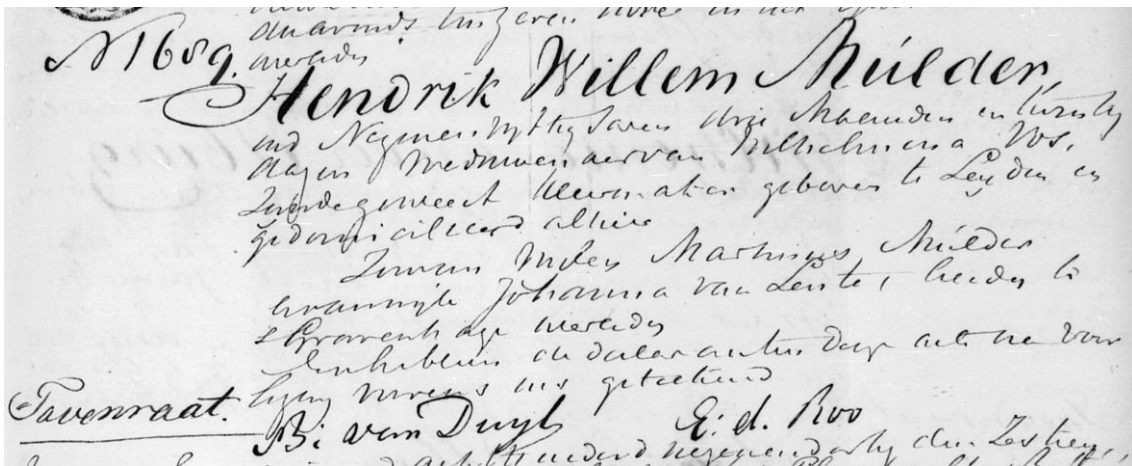 des avonds ten zeven uren in het
N 1689. overleden
Hendrik Willem Mulder,
oud Negenenvyftig Jaren drie Maanden en twintig
dagen Weduwenaer van Wilhelmina Vos,
zynde geweest geboren te Leyden en
gedomicilieerd alhier
Zoon van Martinus Mulder
en van wyle Johanna van Lente, beiden te
s Gravenhage overleden
En hebben de declaranten deze acte na voor
lezing nevens ons getekend
Tavenraat.
B: van Duyl E: d. Roo
achttienhonderd negenendertig den Zestien,